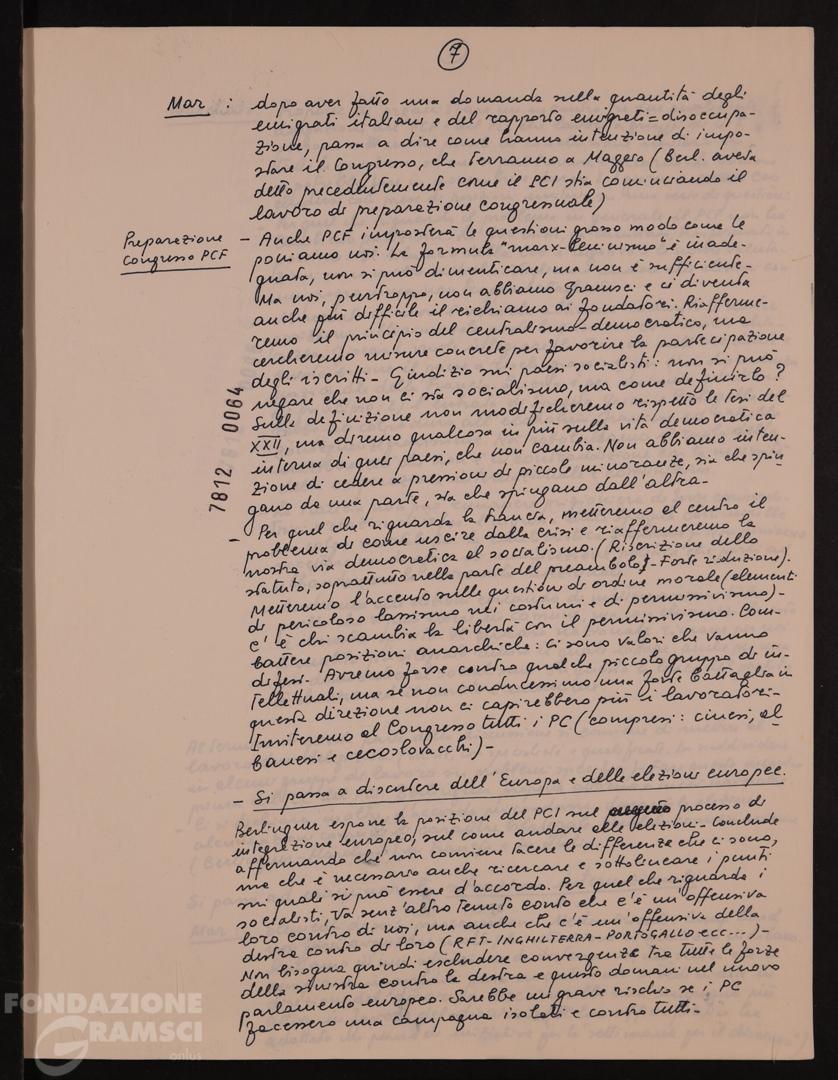 7
Mar : dopo aver fatto una domanda sulla quantità degli
emigrati italiani e del rapporto emigrati=disoccupa-
zione, passa a dire come hanno intenzione di impo-
stare il Congresso, che terranno a Maggio (Berl. aveva
detto precedentemente come il PCI stia cominciando il
lavoro di preparazione congressuale)
Preparazione
Congresso PCF
- Anche PCF imposterà le questioni grosso modo come le
poniamo noi. La formula "marx-leninismo" è inade-
guata, non si può dimenticare, ma non è sufficiente.
Ma noi, purtroppo, non abbiamo Gramsci e ci diventa
anche più difficile il richiamo ai fondatori. Riafferme-
remo il principio del centralismo-democratico, ma
cercheremo misure concrete per favorire la partecipazione
degli iscritti - Giudizio sui paesi socialisti: non si può
negare che non ci sia socialismo, ma come definirlo?
Sulla definizione non modificheremo rispetto le tesi del
XXII, ma diremo qualcosa in più sulla vita democratica
interna di quei paesi, che non cambia. Non abbiamo inten-
zione di cedere a pressioni di piccole minoranze, sia che spin-
gano da una parte, sia che spingano dall'altra -
- Per quel che riguarda la Francia, metteremo al centro il
problema di come uscire dalla crisi e riaffermeremo la
nostra via democratica al socialismo. (Riscrizione dello
statuto, soprattutto nella parte del preambolo) - Forte riduzione).
Metteremo l'accento sulle questioni di ordine morale (elementi
di pericoloso lassismo nei costumi e di permissivismo) -
C'è chi scambia la libertà con il permissivismo. Com-
battere posizioni anarchiche: ci sono valori che vanno
difesi. Avremo forse contro qualche piccolo gruppo di in-
tellettuali, ma se non conducessimo una forte battaglia in
questa direzione non ci capirebbero più i lavoratori -
Inviteremo al Congresso tutti i PC (compresi: cinesi, al
banesi e cecoslovacchi) -
- Si passa a discutere dell'Europa e delle elezioni europee.
Berlinguer espone la posizione del PCI sul processo di
integrazione europeo, sul come andare alle elezioni - Conclude
affermando che non conviene tacere le differenze che ci sono,
ma che è necessario anche ricercare e sottolineare i punti
sui quali si può essere d'accordo. Per quel che riguarda i
socialisti, va senz'altro tenuto conto che c'è un'offensiva
loro contro di noi, ma anche che c'è un'offensiva della
destra contro di loro (RFT-INGHILTERRA-PORTOGALLO ecc...) -
Non bisogna quindi escludere convergenze tra tutte le forze
della sinistra contro la destra e questo domani nel nuovo
parlamento europeo. Sarebbe un grave rischio se i PC
facessero una campagna isolati e contro tutti -
7812 0064
FONDAZIONE
GRAMSCI
onlus